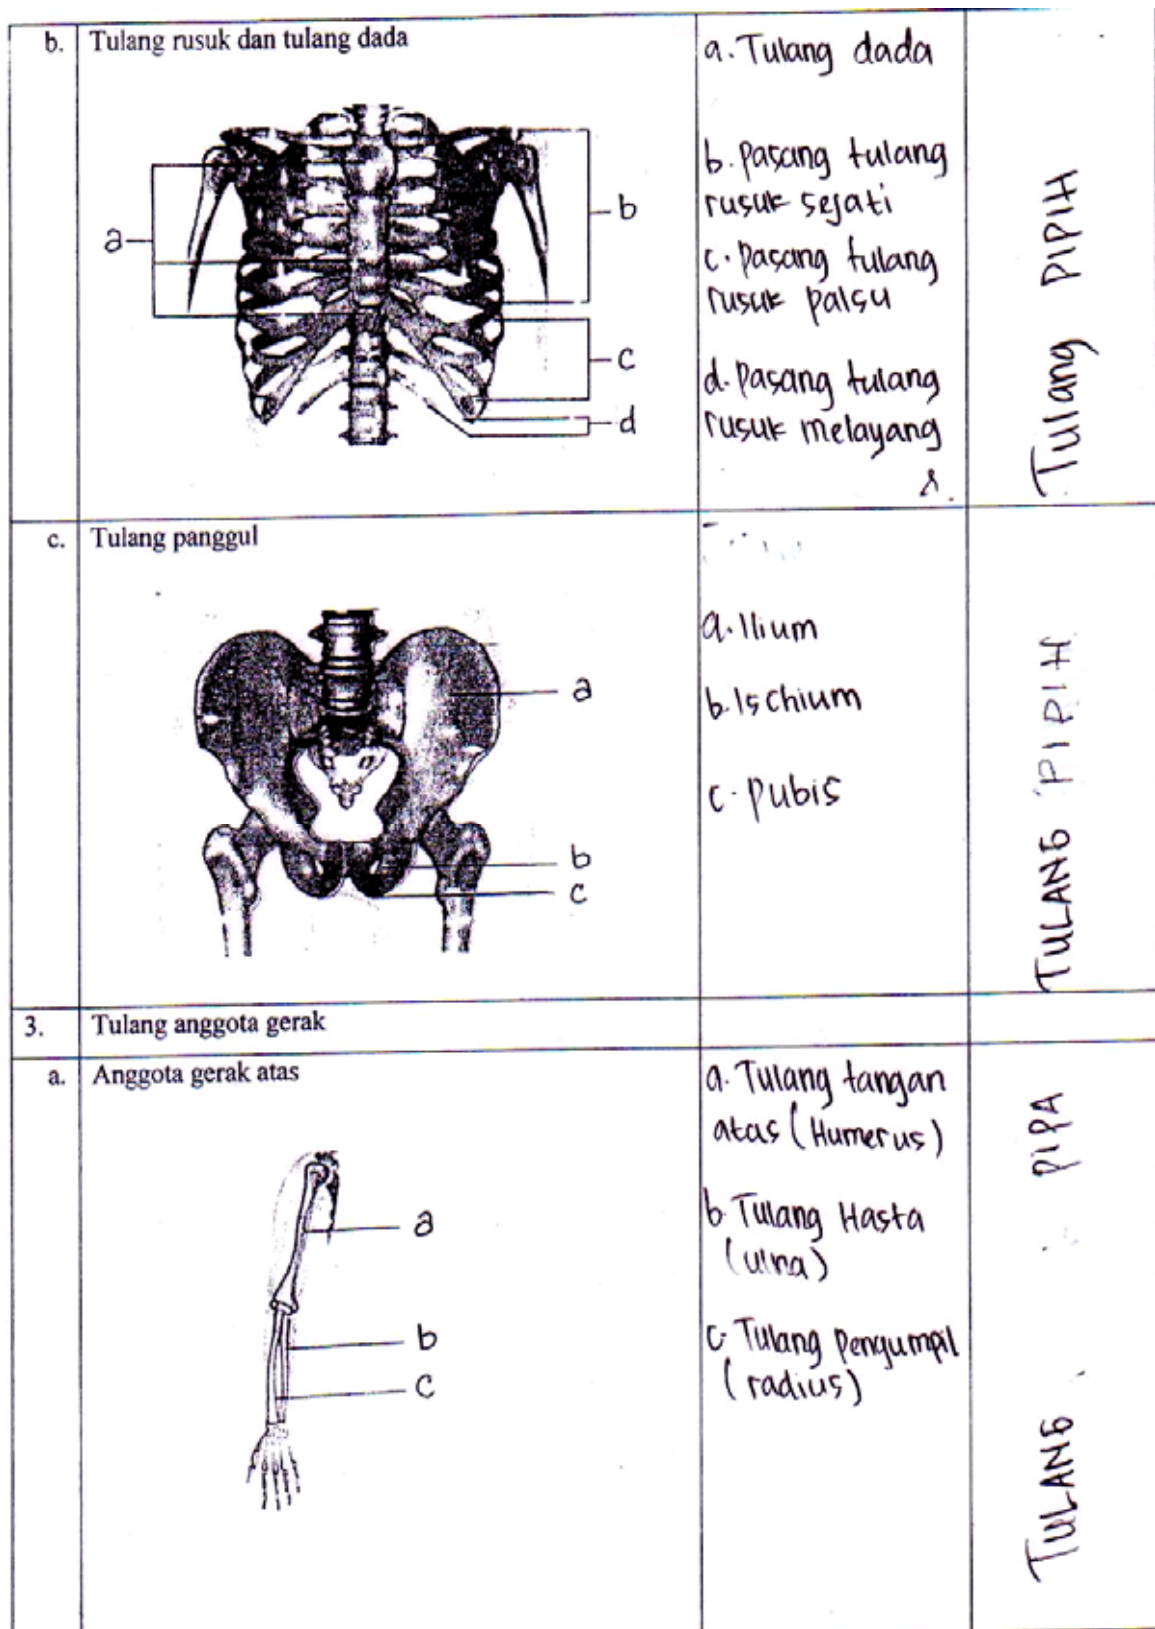 b. Tulang rusuk dan tulang dada
a
b
c
d
a. Tulang dada
b. Pasang tulang
rusuk sejati
c. Pasang tulang
rusuk palsu
d. Pasang tulang
rusuk melayang
Tulang PIPIH
c. Tulang panggul
a
b
c
a. Ilium
b. Ischium
c. Pubis
TULANG PIPIH
3. Tulang anggota gerak
a. Anggota gerak atas
a
b
c
a. Tulang tangan
atas (Humerus)
b. Tulang Hasta
(ulna)
c. Tulang Pengumpil
(radius)
TULANG PIPA